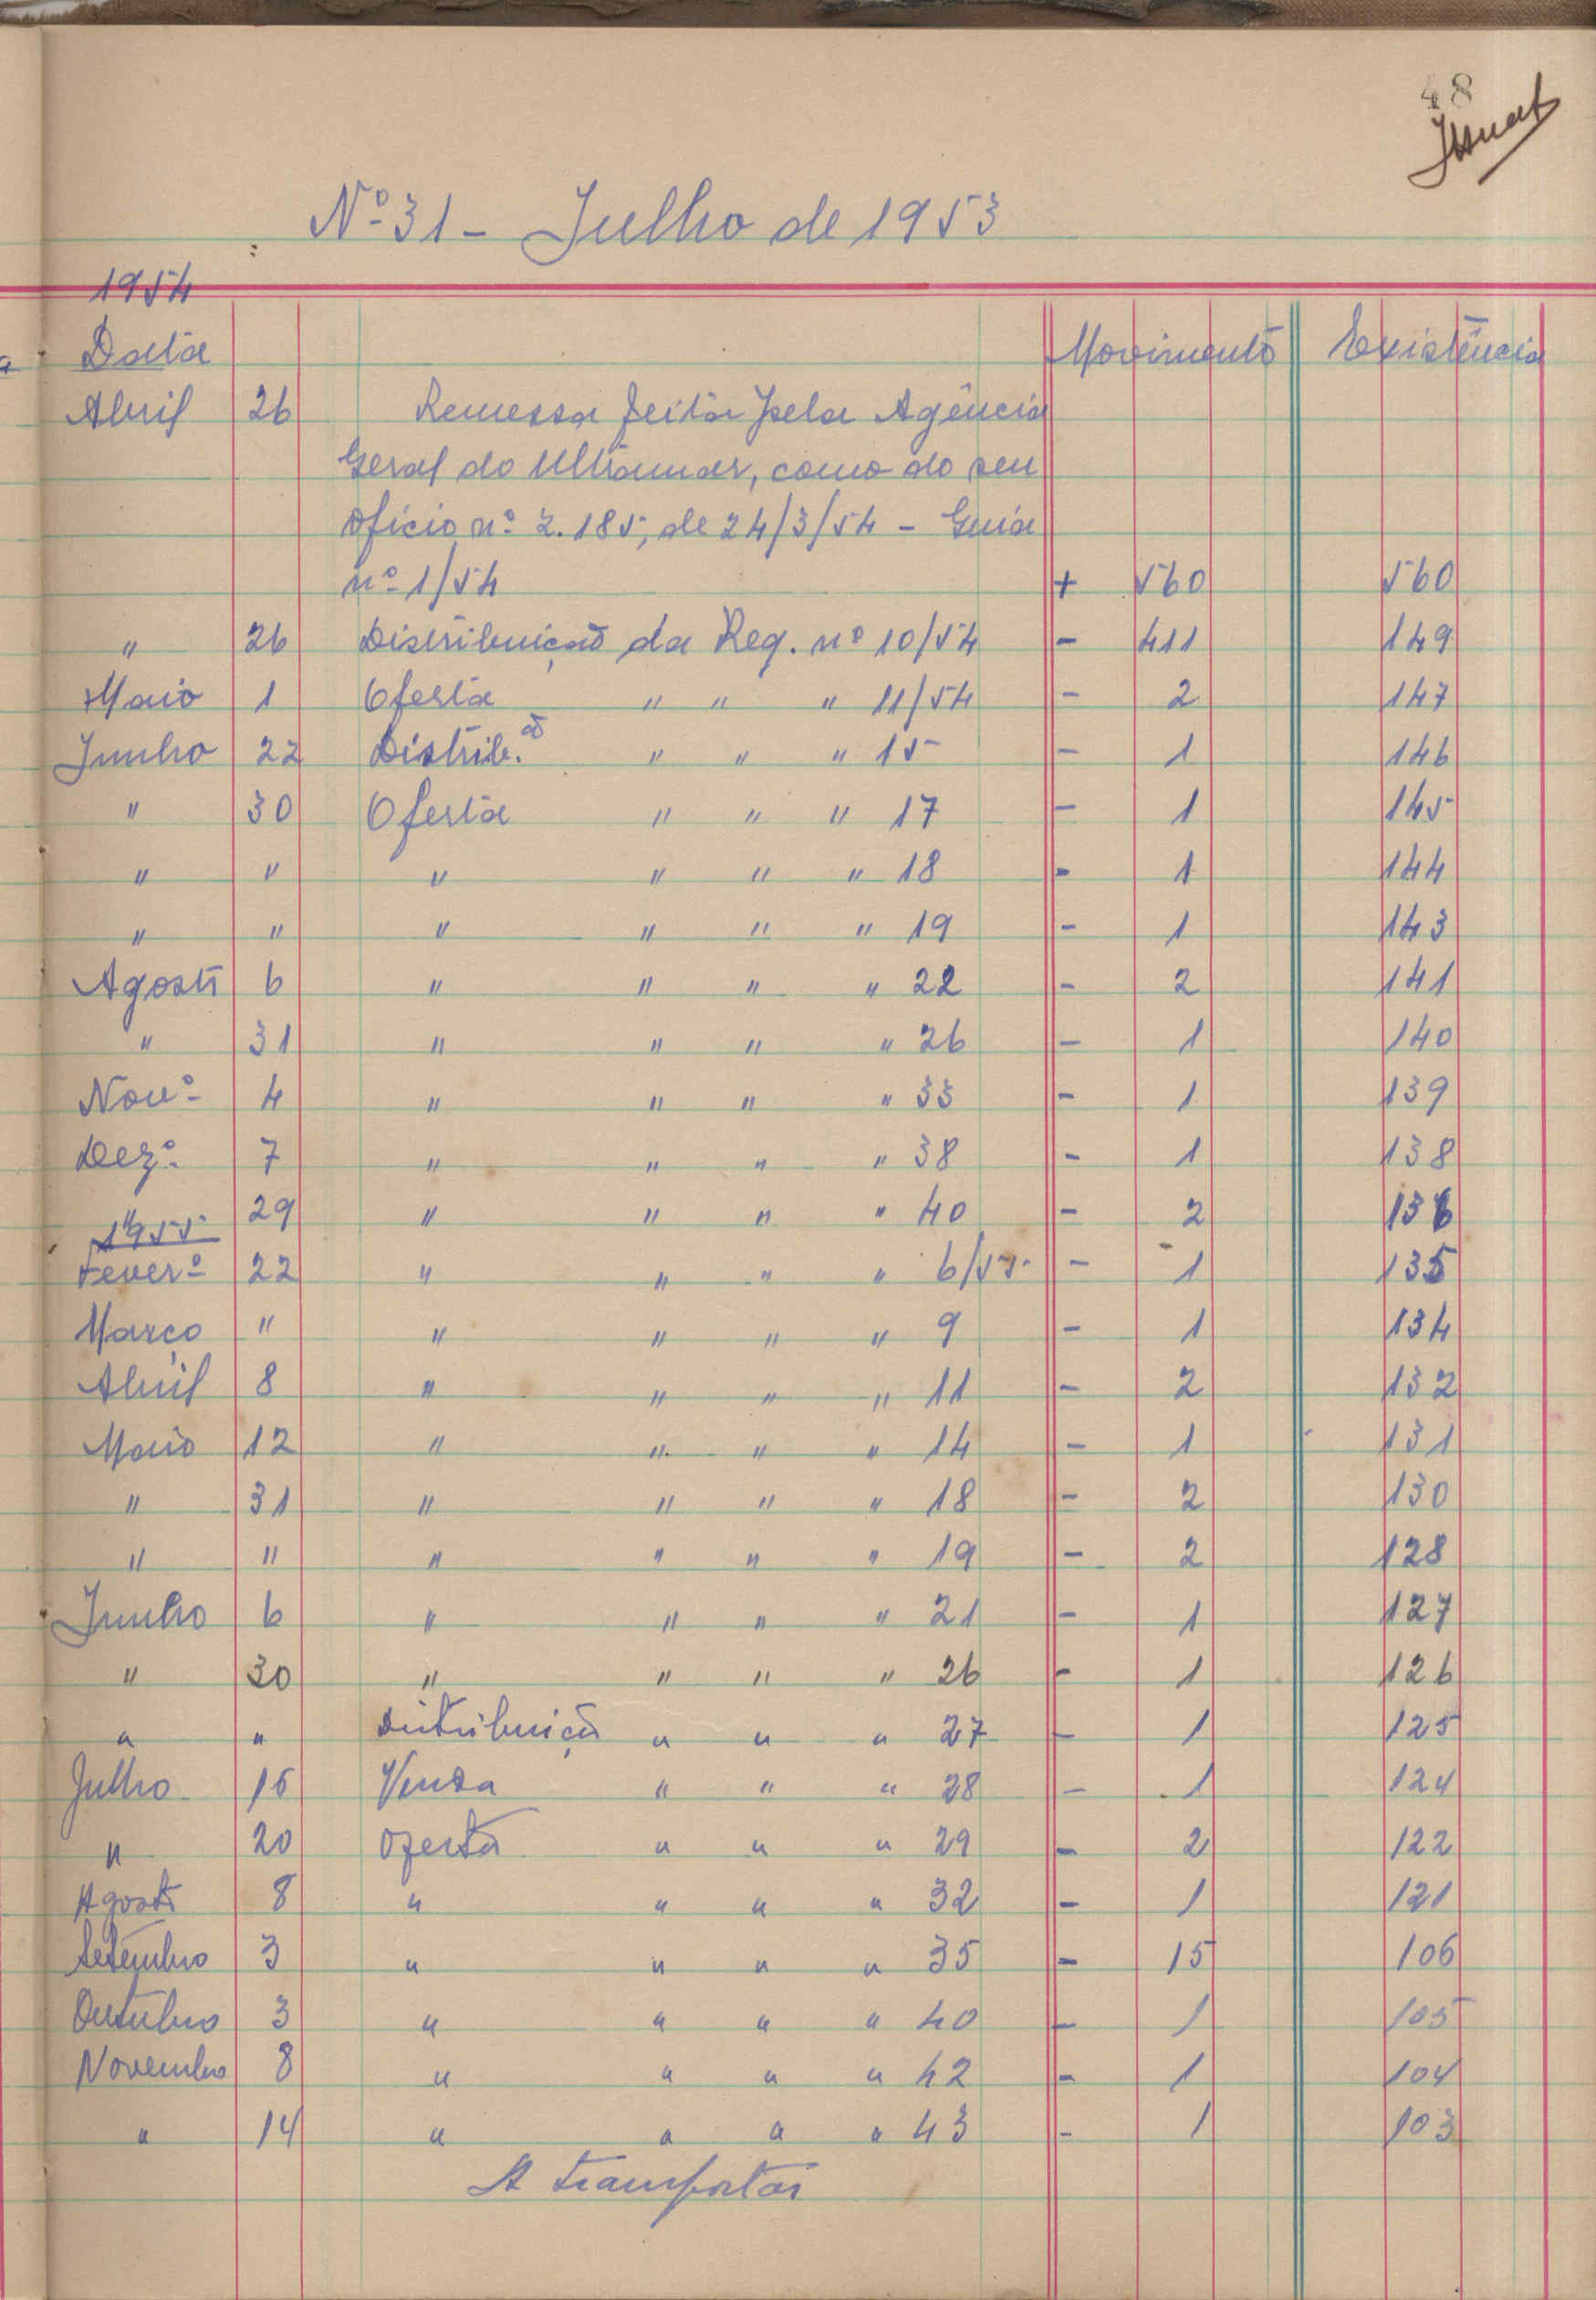 48
Nº 31 - Julho de 1953
1954
Data Movimento Existência
Abril 26 Remessa feita pela Agência
Geral do Ultramar, como do seu
ofício nº 2.185, de 24/3/54 - Guia
nº 1/54 + 560 560
" 26 Distribuição da Req. nº 10/54 - 411 149
Maio 1 Oferta " " " 11/54 - 2 147
Junho 22 Distrib.ão " " " 15 - 1 146
" 30 Oferta " " " 17 - 1 145
" " " " " " 18 - 1 144
" " " " " " 19 - 1 143
Agosto 6 " " " " 22 - 2 141
" 31 " " " " 26 - 1 140
Novº 4 " " " " 33 - 1 139
Dezº 7 " " " " 38 - 1 138
" 29 " " " " 40 - 2 136
1955
Feverº 22 " " " " 6/55 - 1 135
Março " " " " " 9 - 1 134
Abril 8 " " " " 11 - 2 132
Maio 12 " " " " 14 - 1 131
" 31 " " " " 18 - 2 130
" " " " " " 19 - 2 128
Junho 6 " " " " 21 - 1 127
" 30 " " " " 26 - 1 126
" " Distribuição " " " 27 - 1 125
Julho 16 Venda " " " 28 - 1 124
" 20 Oferta " " " 29 - 2 122
Agosto 8 " " " " 32 - 1 121
Setembro 3 " " " " 35 - 15 106
Outubro 3 " " " " 40 - 1 105
Novembro 8 " " " " 42 - 1 104
" 14 " " " " 43 - 1 103
A transportar